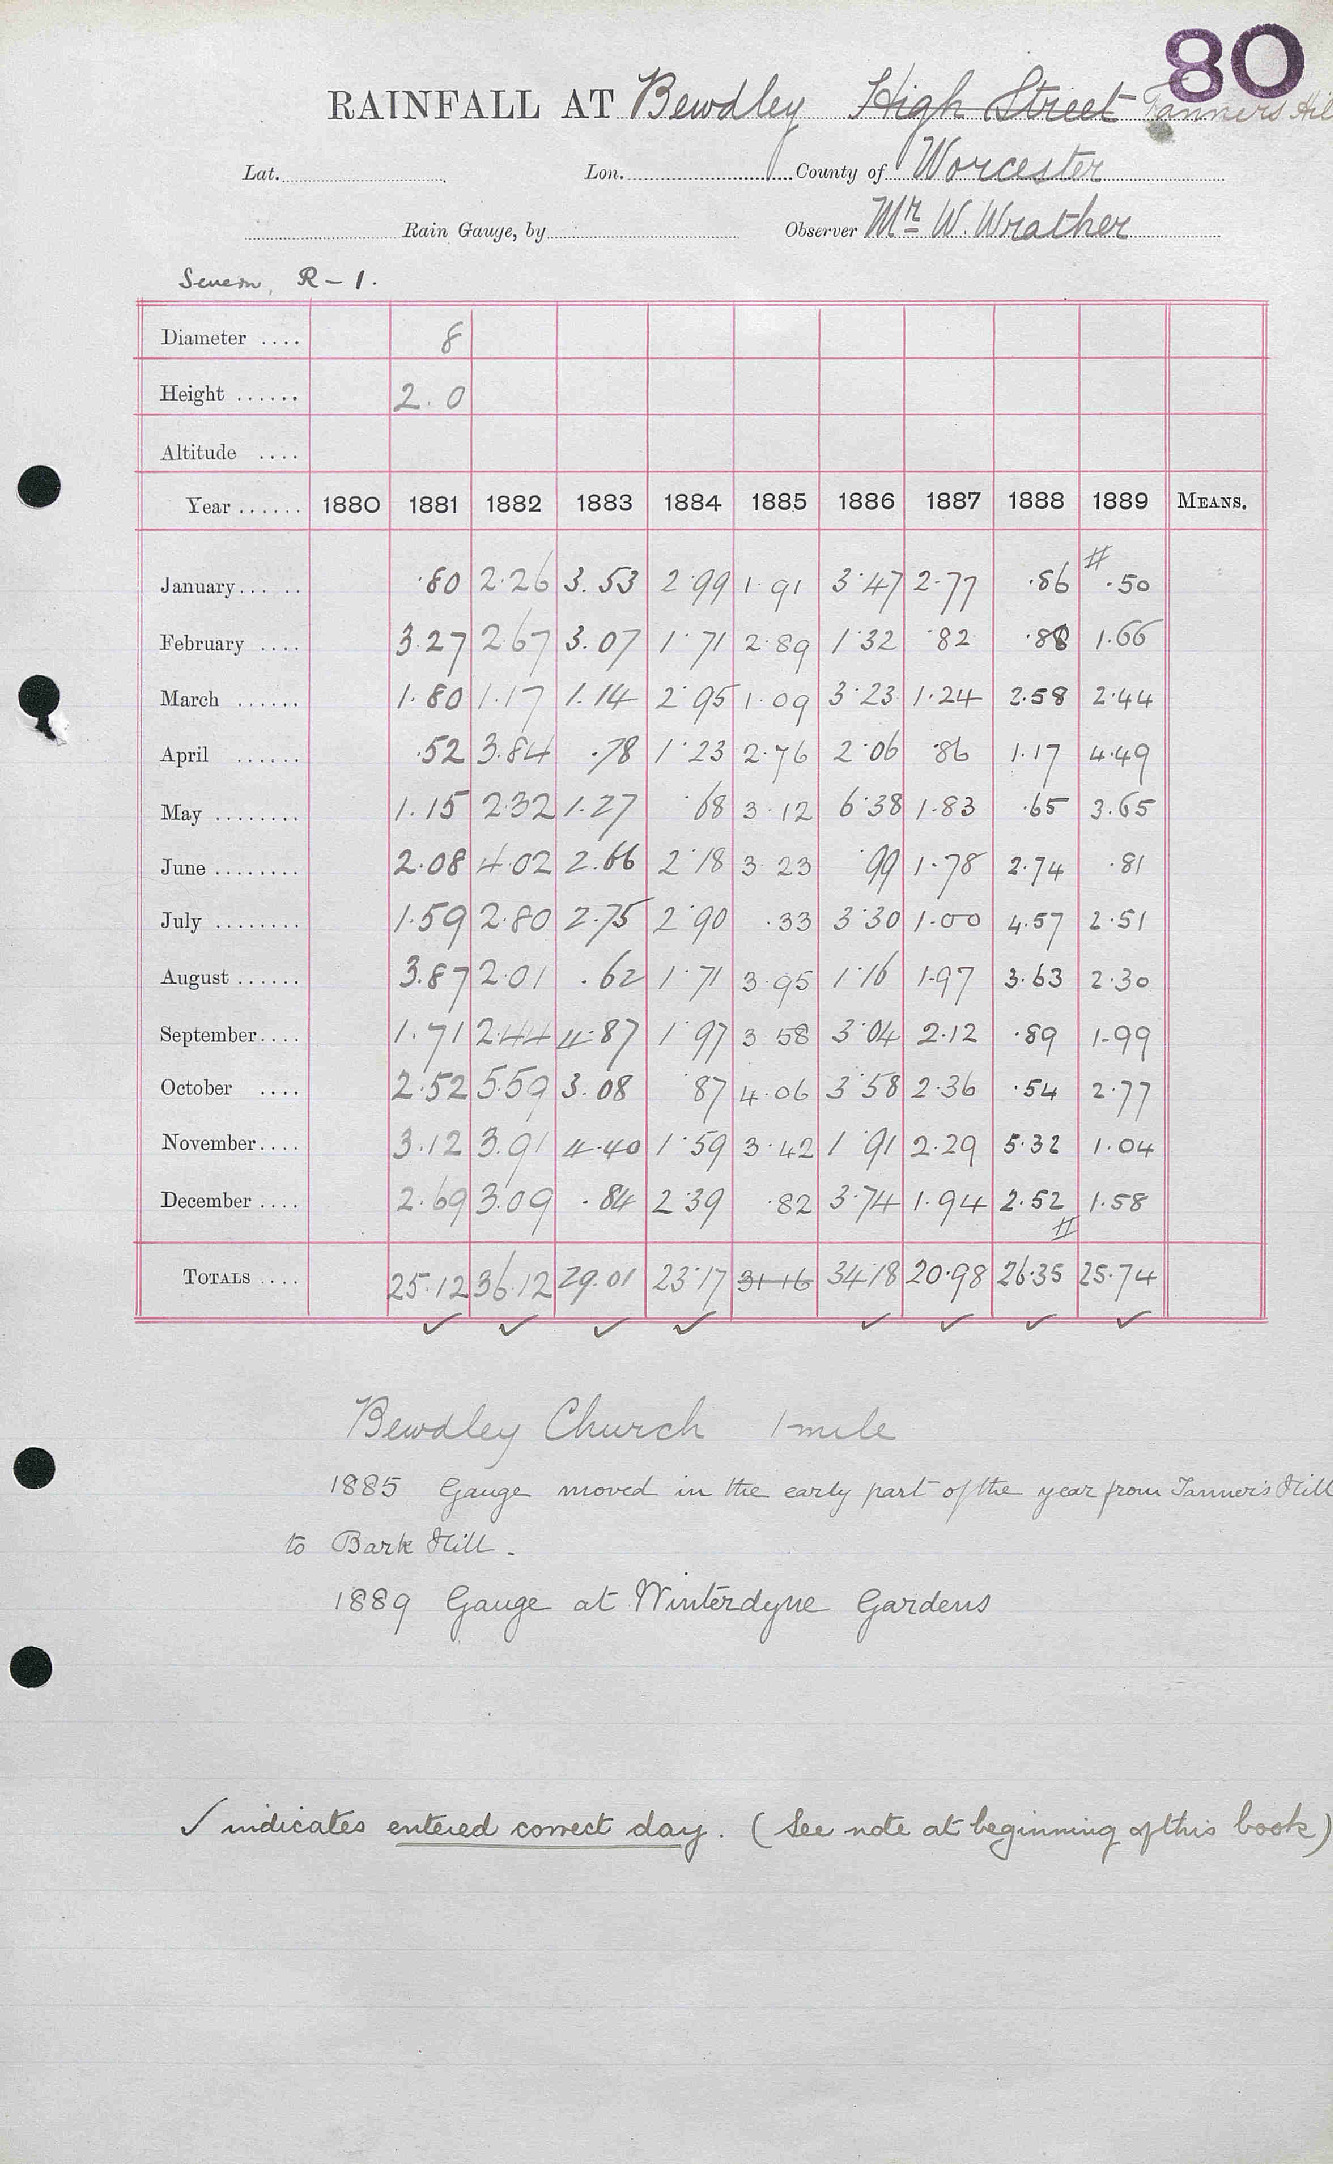 80
RAINFALL AT Bewdley High Street Tanners Hil
Lat. Lon. County of Worcester
Rain Gauge, by Observer Mr W. Wrather
Severn, R-1.
Diameter .... 8
Height ...... 2.0
Altitude ....
Year ...... 1880 1881 1882 1883 1884 1885 1886 1887 1888 1889 MEANS.
#
January...... .80 2.26 3.53 2.99 1.91 3.47 2.77 .86 .50
February .... 3.27 2.67 3.07 1.71 2.89 1.32 .82 .88 1.66
March ...... 1.80 1.17 1.14 2.95 1.09 3.23 1.24 2.58 2.44
April ...... .52 3.84 .78 1.23 2.76 2.06 .86 1.17 4.49
May ........ 1.15 2.32 1.27 .68 3.12 6.38 1.83 .65 3.65
June ........ 2.08 4.02 2.66 2.18 3.23 .99 1.78 2.74 .81
July ........ 1.59 2.80 2.75 2.90 .33 3.30 1.00 4.57 2.51
August ...... 3.87 2.01 .62 1.71 3.95 1.16 1.97 3.63 2.30
September.... 1.71 2.44 4.87 1.97 3.58 3.04 2.12 .89 1.99
October .... 2.52 5.59 3.08 .87 4.06 3.58 2.36 .54 2.77
November.... 3.12 3.91 4.40 1.59 3.42 1.91 2.29 5.32 1.04
December .... 2.69 3.09 .84 2.39 .82 3.74 1.94 2.52 1.58
#
TOTALS .... 25.12 36.12 29.01 23.17 31.16 34.18 20.98 26.35 25.74
✓ ✓ ✓ ✓ ✓ ✓ ✓ ✓
Bewdley Church 1 mile
1885 Gauge moved in the early part of the year from Tanner's Hill
to Bark Hill.
1889 Gauge at Winterdyne Gardens
✓ indicates entered correct day. (See note at beginning of this book)